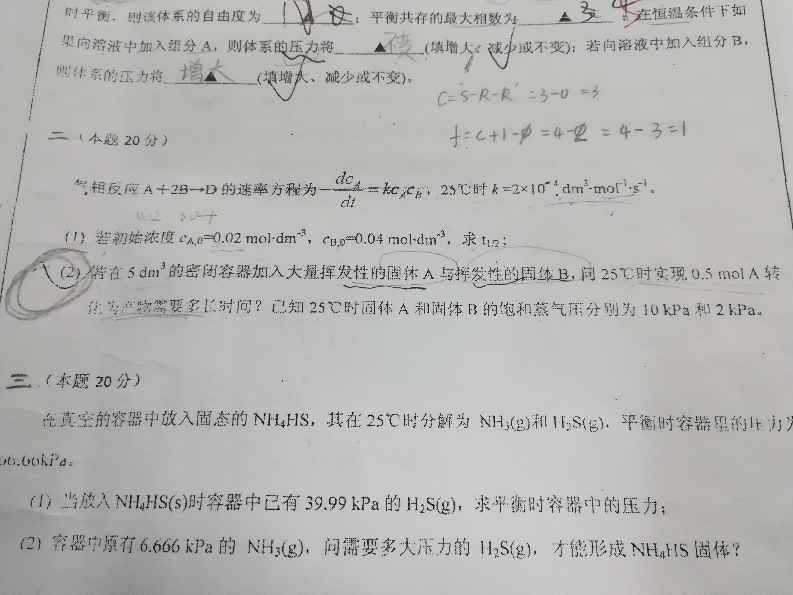 时平衡，则该体系的自由度为 1 ；平衡共存的最大相数为 ▲ 3 。在恒温条件下如
果向溶液中加入组分 A，则体系的压力将 ▲ (填增大、减少或不变)；若向溶液中加入组分 B，
则体系的压力将 增大 ▲ (填增大、减少或不变)。
C=S-R-R' =3-0 =3
f=C+1-φ =4- = 4-3=1
二 （本题 20 分）
气相反应 A＋2B→D 的速率方程为 -dc_A/dt = kc_Ac_B，25℃时 k=2×10⁻⁴ dm³·mol⁻¹·s⁻¹。
(1) 若初始浓度 c_A,0=0.02 mol·dm⁻³，c_B,0=0.04 mol·dm⁻³，求 t₁/₂；
(2) 若在 5 dm³ 的密闭容器加入大量挥发性的固体 A 与挥发性的固体 B，问 25℃时实现 0.5 mol A 转
化为产物需要多长时间？已知 25℃时固体 A 和固体 B 的饱和蒸气压分别为 10 kPa 和 2 kPa。
三 （本题 20 分）
在真空的容器中放入固态的 NH₄HS，其在 25℃时分解为 NH₃(g)和 H₂S(g)，平衡时容器里的压力为
66.66kPa。
(1) 当放入 NH₄HS(s)时容器中已有 39.99 kPa 的 H₂S(g)，求平衡时容器中的压力；
(2) 容器中原有 6.666 kPa 的 NH₃(g)，问需要多大压力的 H₂S(g)，才能形成 NH₄HS 固体？